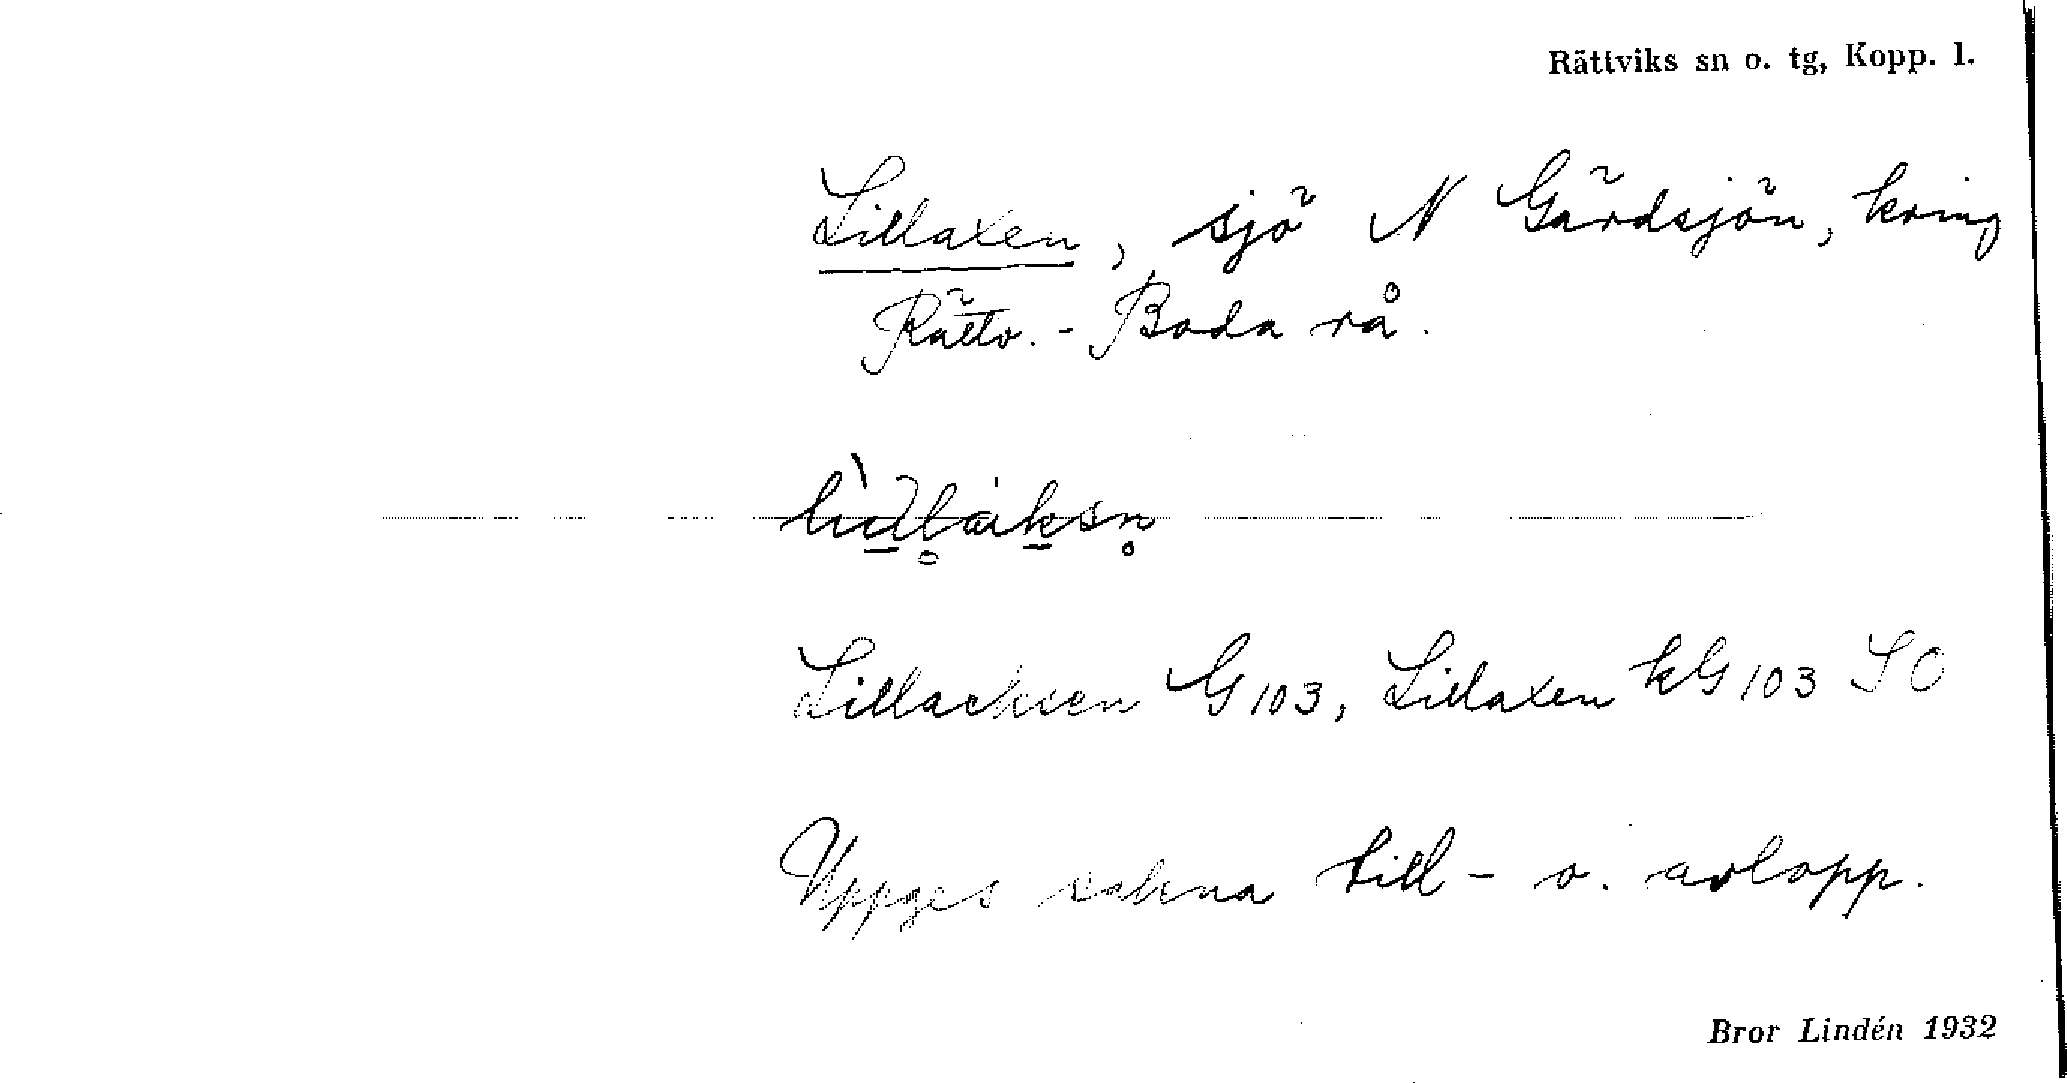 Rättviks sn o. tg, Kopp. l.
Lillaxen, sjö N Gärdsjön, kring
Rättv. - Boda rå.
Lillacksen G 103, Lillaxen kG 103 SO
Uppges sakna till- o. avlopp.
Bror Lindén 1932